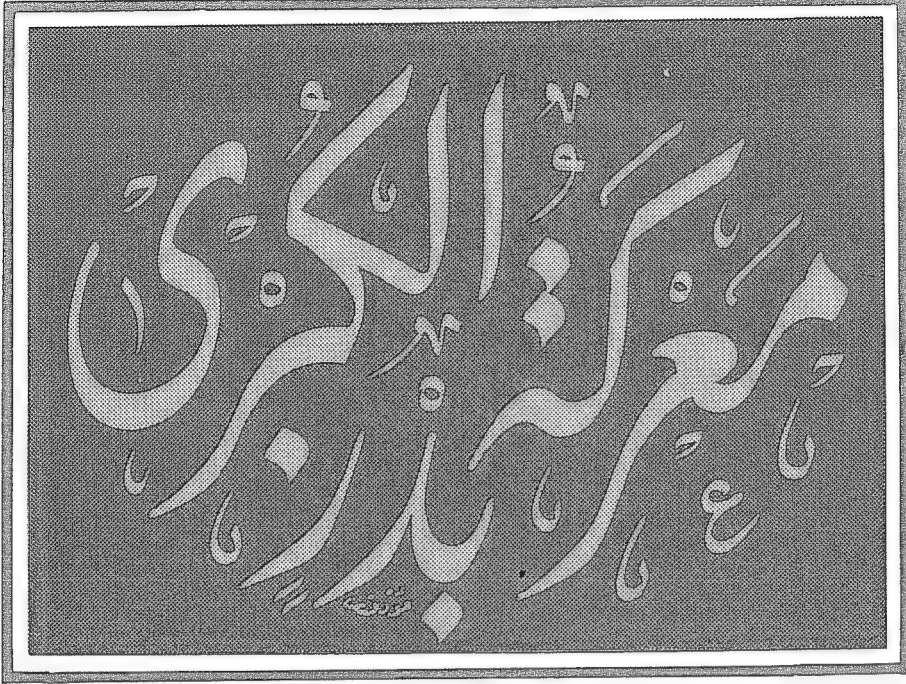 معركة بدر الكبرى